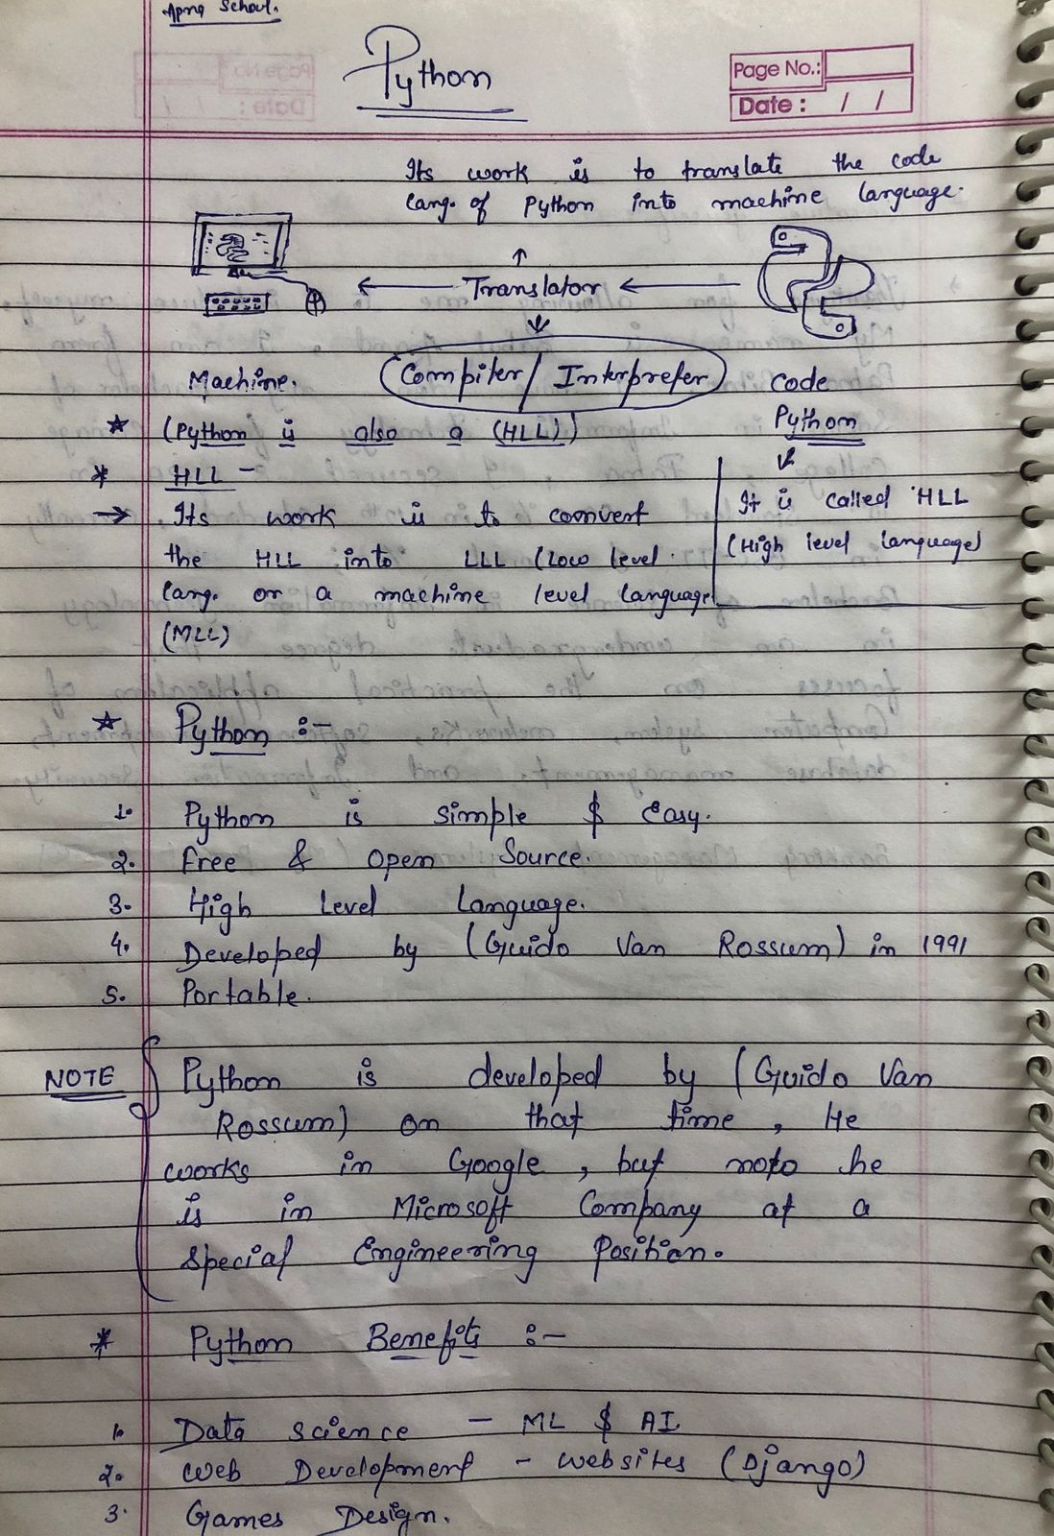 Apna School.
Python
Page No.:
Date : / /
Its work is to translate the code
lang. of Python into machine language.
Translator
Machine.
(Compiler/ Interprefer)
Code
Python
* (Python is also a (HLL))
* HLL -
It is called HLL
(High level language)
→ Its work is to convert
the HLL into LLL (Low level
lang. or a machine level language
(MLL)
* Python :-
1. Python is simple $ Easy.
2. Free & Open Source.
3. High Level Language.
4. Developed by (Guido Van Rossum) in 1991
5. Portable.
NOTE
Python is developed by (Guido Van
Rossum) on that time, He
works in Google, but he
is in Microsoft Company at a
Special Engineering Position.
* Python Benefits :-
1. Data science - ML $ AI
2. Web Development - websites (Django)
3. Games Design.